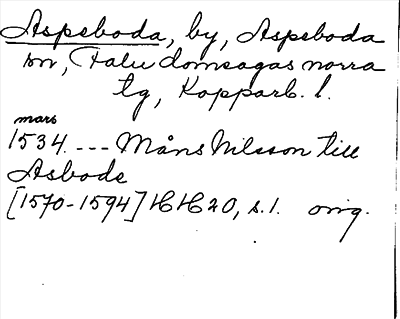 Aspeboda, by, Aspeboda
sn, Falu domsagas norra
tg, Kopparb. l.
mars
1534. --- Måns Nilsson till
Asbode
[1570-1594] HH20, s. 1. orig.